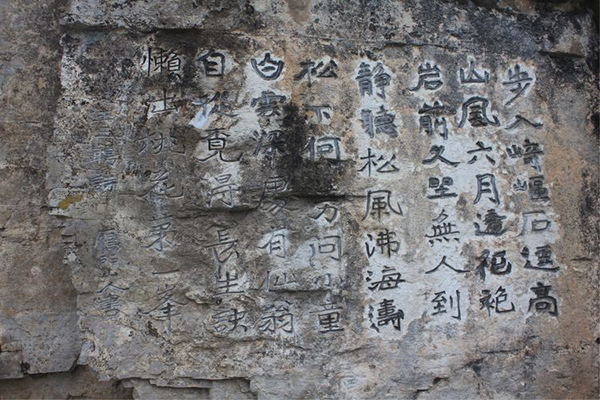 步入崎嶇石逕高
山風六月透袍
岩前久坐無人到
静聽松風沸海濤
松下何方问小童
白雲深處有仙翁
自從覓得長生訣
懶出桃花第一峯